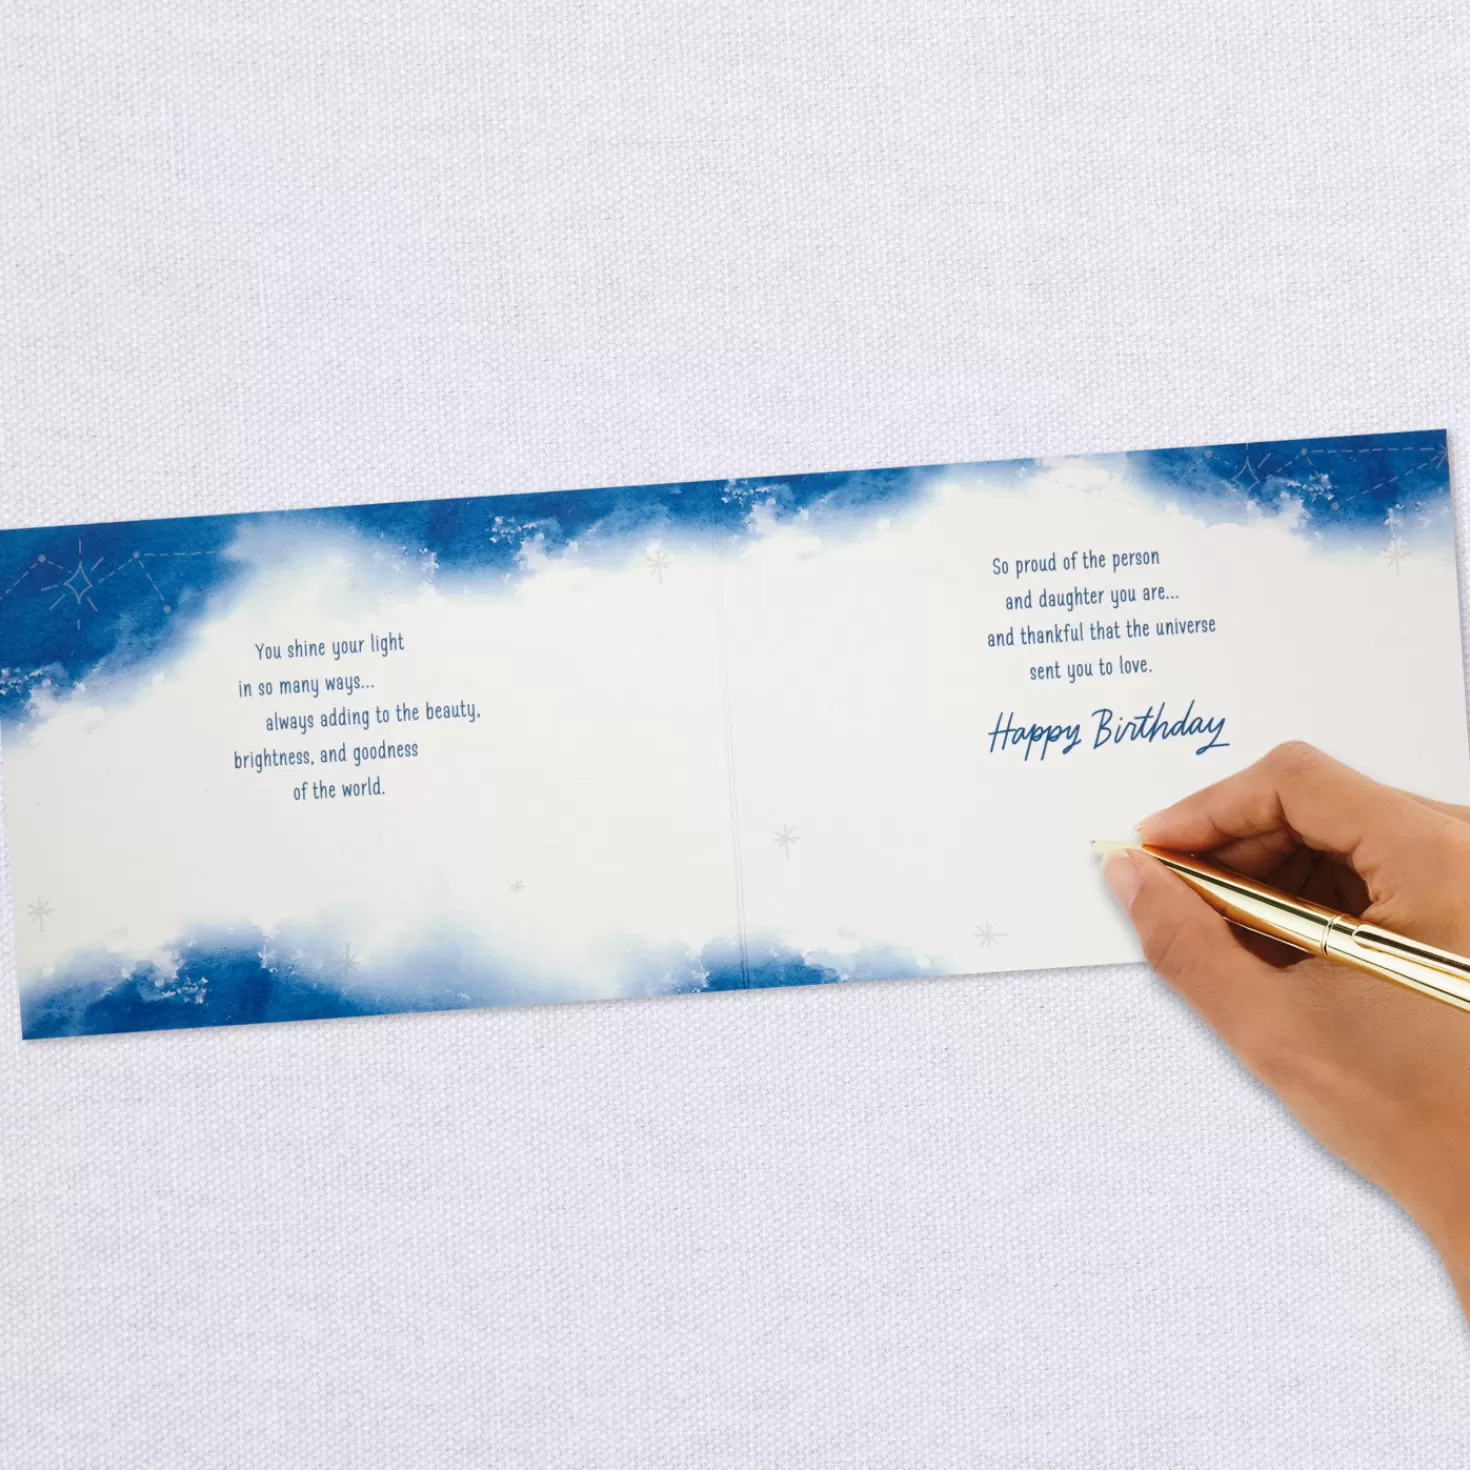 You shine your light
in so many ways...
always adding to the beauty,
brightness, and goodness
of the world.
So proud of the person
and daughter you are...
and thankful that the universe
sent you to love.
Happy Birthday